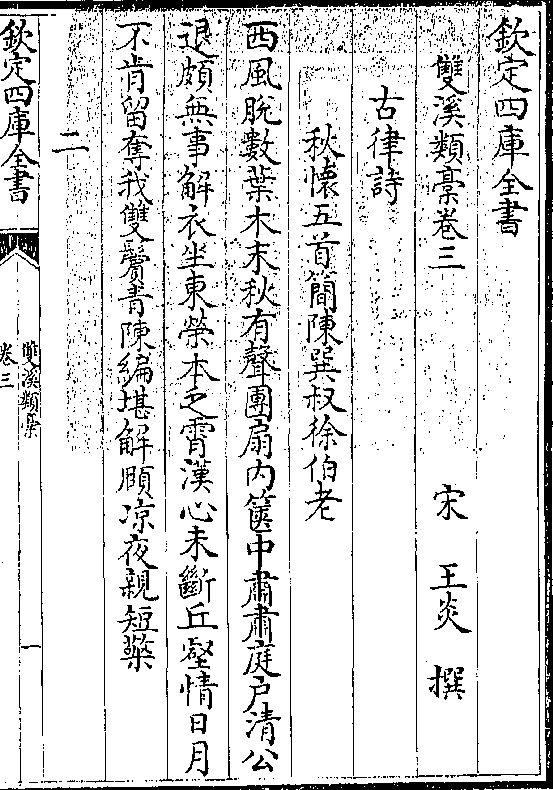 欽定四庫全書
雙溪類稾卷三
宋 王炎 撰
古律詩
秋懷五首簡陳巽叔徐伯老
西風脫數葉木末秋有聲團扇内篋中肅肅庭户清公
退頗無事解衣坐東榮本乏霄漢心未斷丘壑情日月
不肯留奪我雙鬢青陳編堪解頤凉夜親短檠
二
欽定四庫全書
雙溪類稾
卷三
一